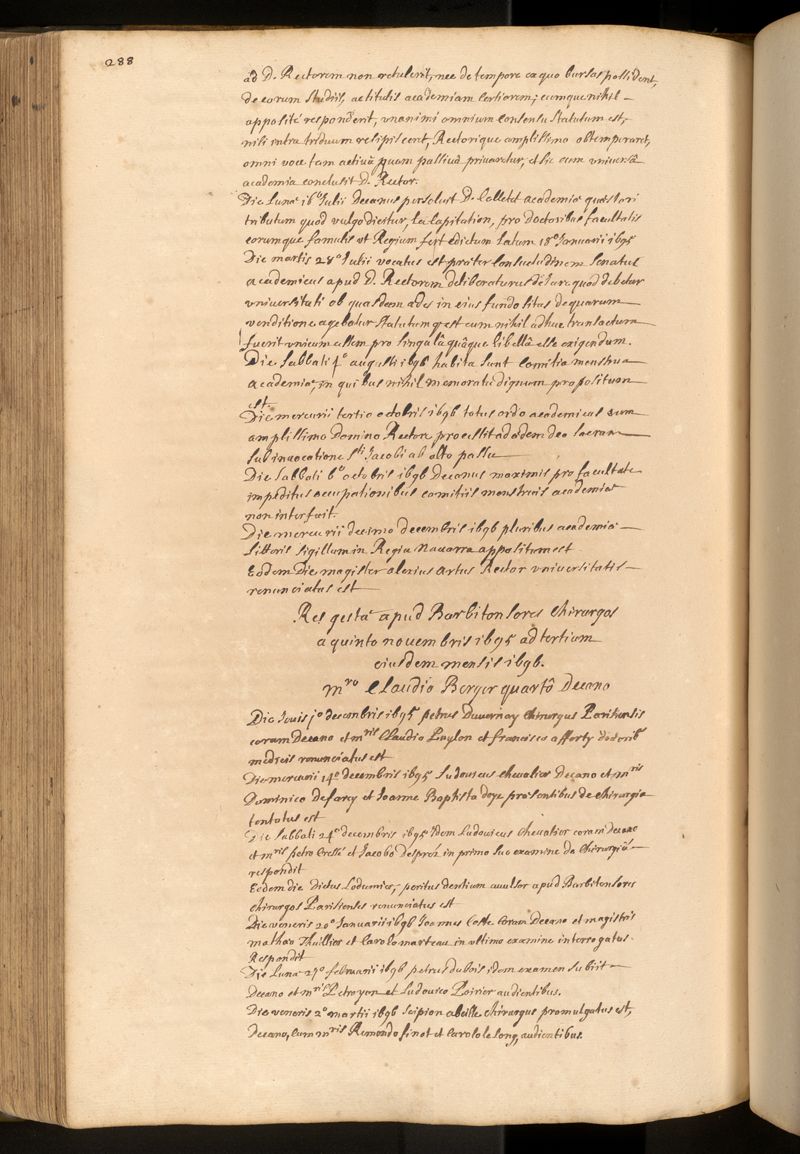 288
ad D. Rectorem non retulerit, nec de tempore ex quo bursas possident,
de eorum studiis, ac titulis academiam certiorem; cumque nihil
apposité responderit, vnanimi omnium consensu statutum est,
nisi intra triduum resipiscent, Rectorique amplissimo obtemperaret,
omni voce tam activâ quam passivâ privaretur, et sic cum vniversâ
academia conclusit D. Rector.
Die Lunae 16° Julii Decanus persolvit D. Colletet academiae quaestori
tributum quod vulgo dicitur, La Capitation, pro Doctoribus facultatis
eorumque famulis vt Regium fert edictum latum 18° Januarii 1695
Die martis 28° Julii vocatus est praeter consuetudinem Senatus
academicus apud D. Rectorem deliberaturus de jure quod debetur
vniversitati ob quasdam aedes in eius fundo sitas de quarum
venditione agebatur statutum q est cum nihil adhuc transactum
fuerit vnicum assem pro singula quâque libellâ esse exigendum.
Die Sabbati 4° augusti 1696 habita sunt comitia menstrua
academiae, in quibus nihil memoratu dignum propositum
est.
Die mercurii tertio octobris 1696 totus ordo academicus cum
amplissimo Domino Rectore processit ad aedem deo sacram
sub invocatione Sti Jacobi ab alto passu
Die Sabbati 6° octobris 1696 Decanus maximis pro facultate
impeditus occupationibus comitiis menstruis academiae
non interfuit.
Die mercurii decimo decembris 1696 pluribus academiae
litteris sigillum in Regia Navarra appositum est
Eodem Die magister alexius artus Rector vniversitatis
renunciatus est
Res gestae apud Barbitonsores Chirurgos
a quinto novembris 1695 ad tertium
eiusdem mensis 1696.
mro Claudio Berger quartô Decano
Die Jouis 1° decembris 1695 petrus Duvernay Chirurgus Parisiensis
coram Decano et mris Claudio Puylon et francisco afforty doctorib
medicis renunciatus est
Die mercurii 14° decembris 1695 Ludovicus Chevalier Decano et mris
Dominico Defarcy et Joanne Baptista Doye praesentibus de chirurgia
tentatus est
Die Sabbati 24° decembris 1695 Idem Ludovicus Chevalier coram Decano
et mris petro Cressé et Jacobo Desprez in primo suo examine de Chirurgiâ
respondit
Eodem die Dictus Lodumier, peritus dentium avulsor apud Barbitonsores
chirurgos Parisienses renunciatus est
Die veneris 20° Januarii 1696 Joannes Coste Coram Decano et magistris
matheo Thuillier et Carolo marteau in vltimo examine interrogatus.
Respondit
Die Lunae 27° februarii 1696 petrus dubois idem examen subiit
Decano et mris Petro yon et Ludovico Poirier audientibus.
Die veneris 2° martii 1696 Scipion abeille chirurgus promulgatus est,
Decano, Cum mris Remondo finot et Carolo le Long, audientibus.